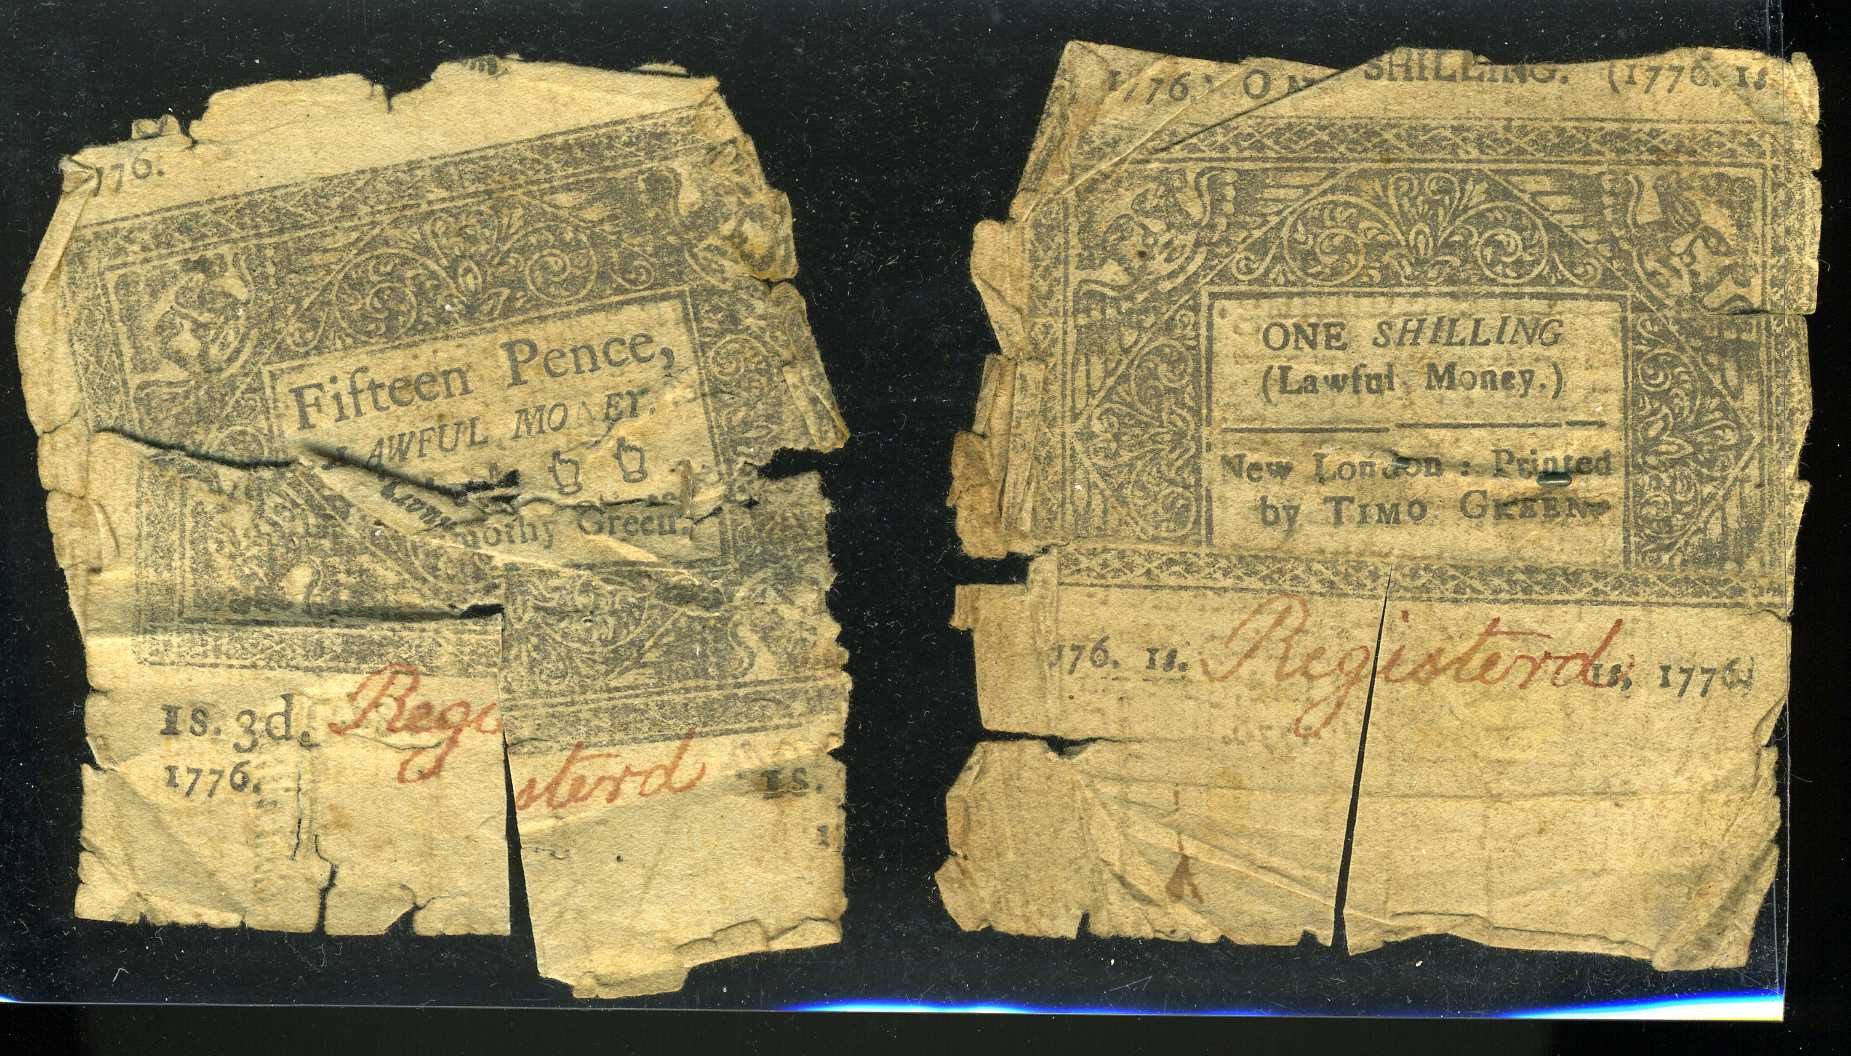 776.
Fifteen Pence,
LAWFUL MONEY.
Green.
1s. 3d. Registerd 1s.
1776.
1776. ONE SHILLING. (1776. 1s.
ONE SHILLING
(Lawful Money.)
New London: Printed
by TIMO GREEN.
176. 1s. Registerd 1s, 1776.